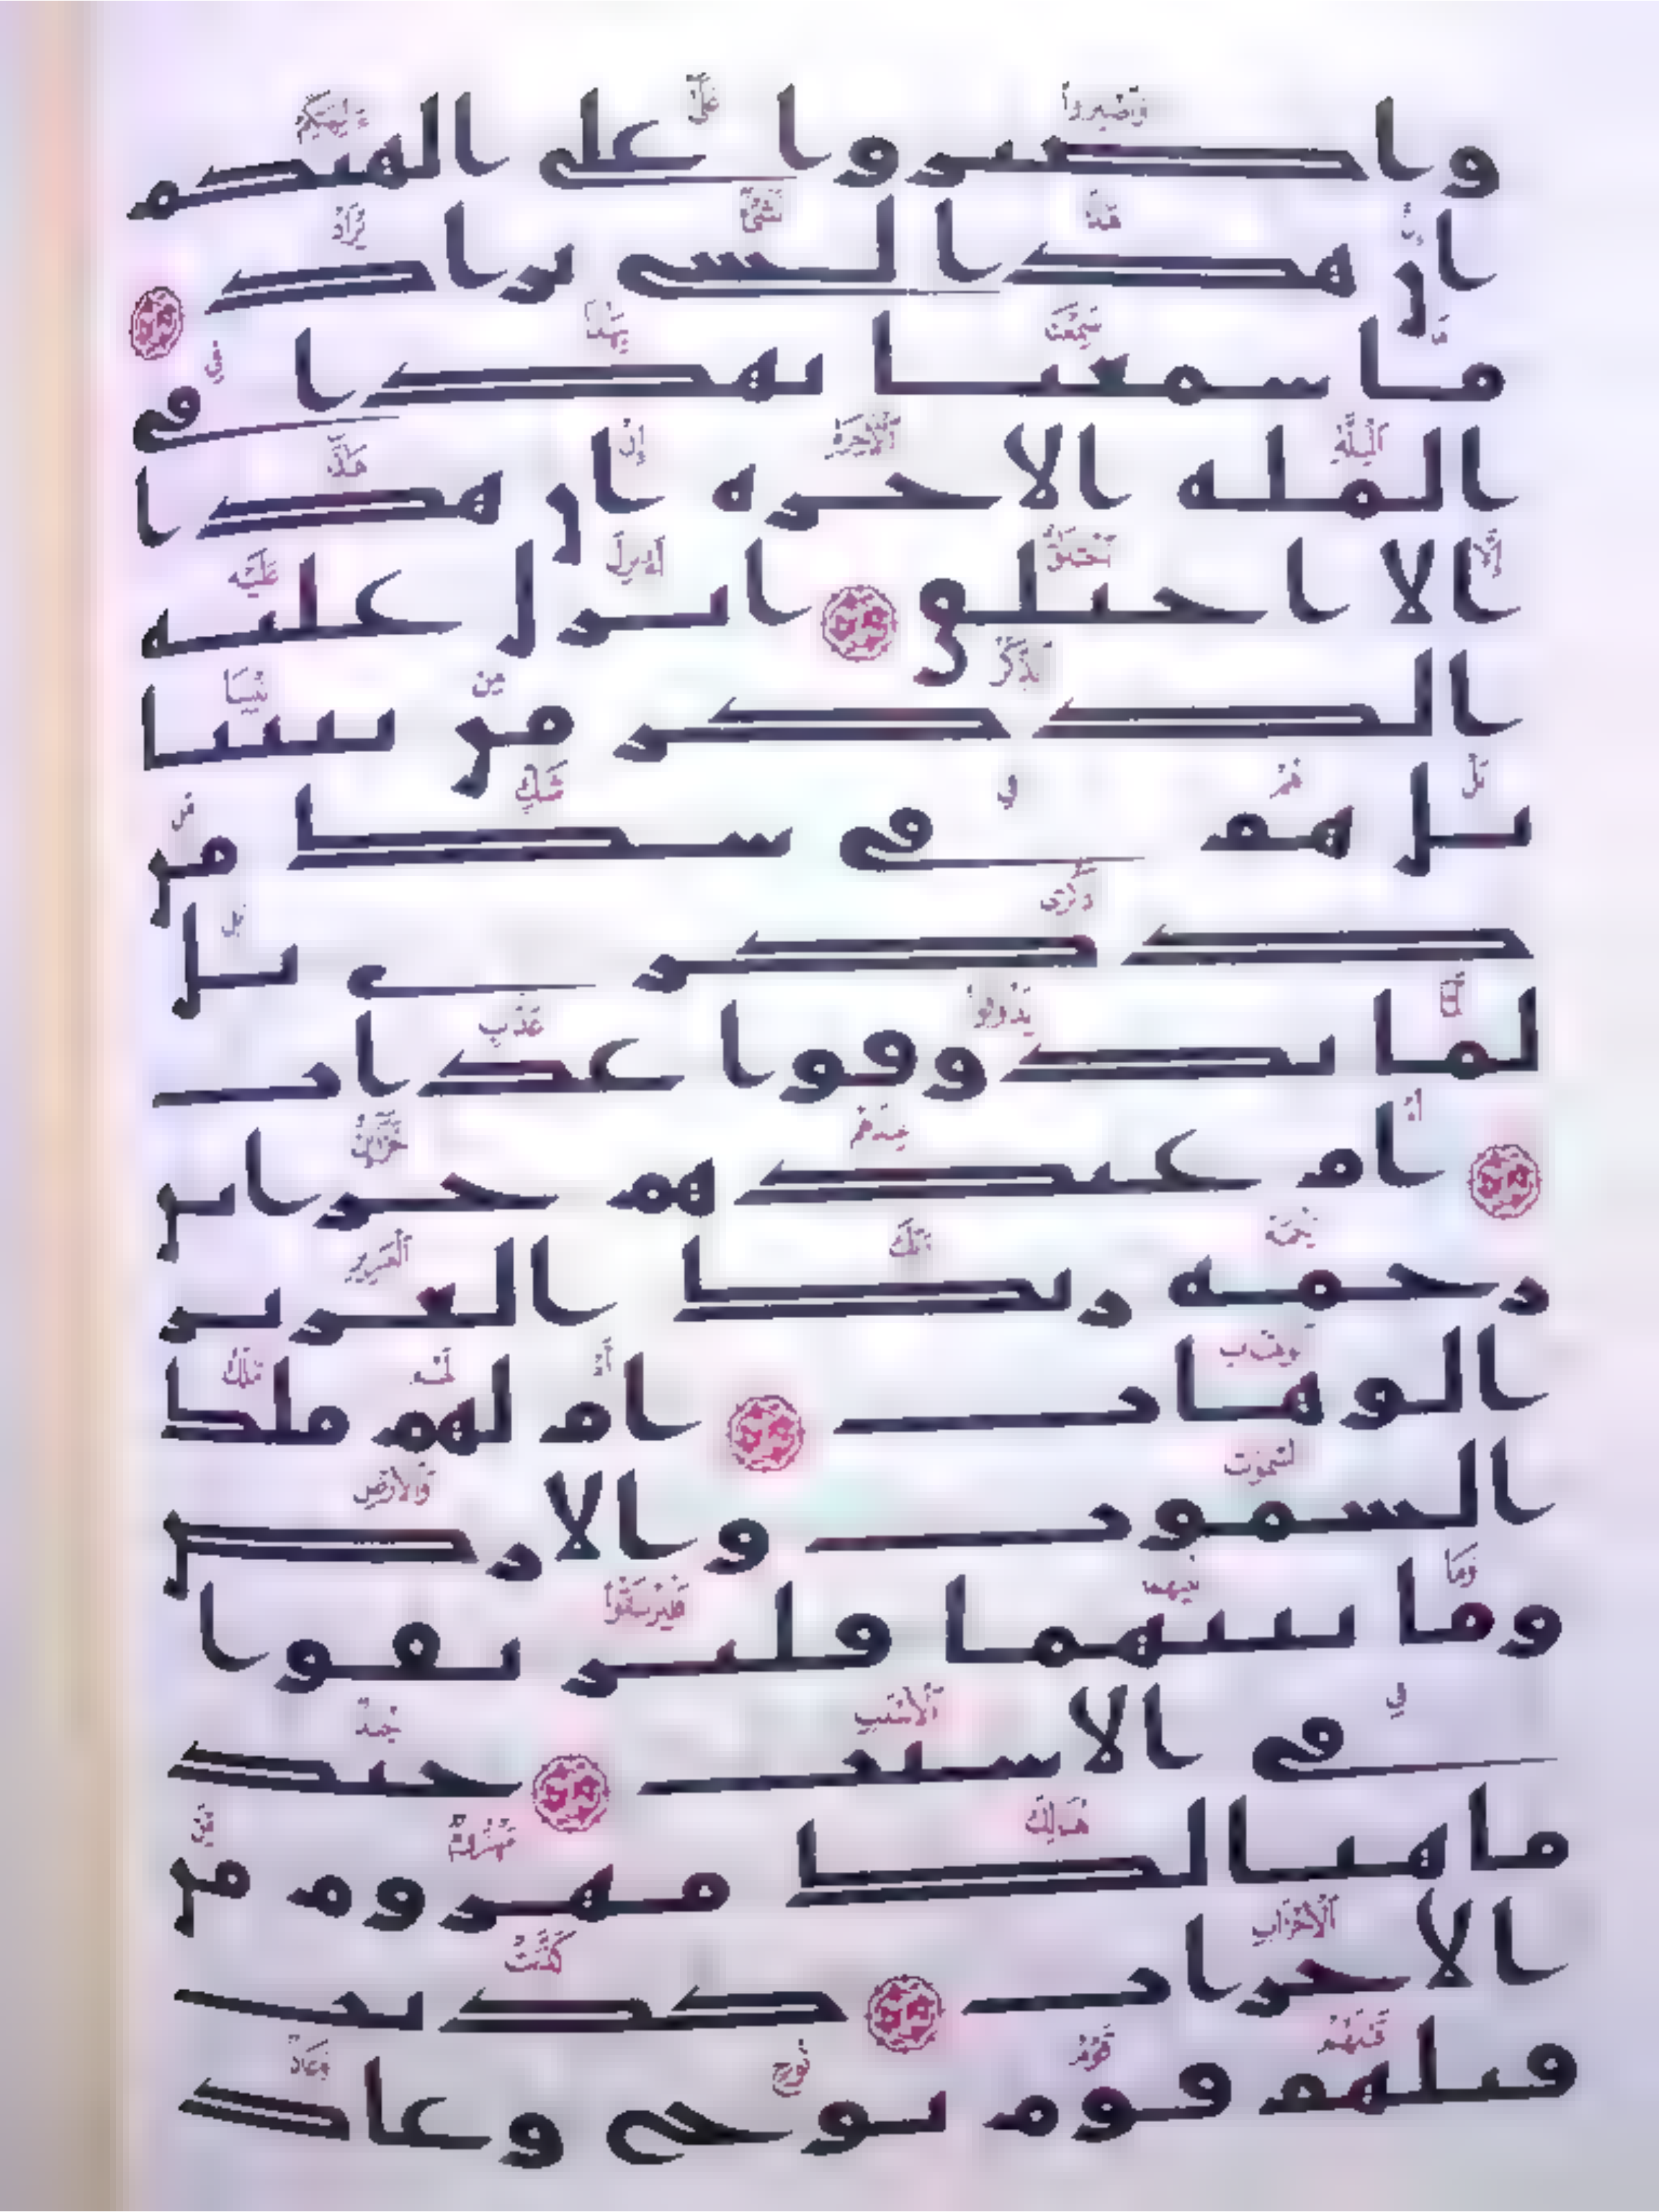 واصبروا على الهتكم
ان هذا لشى يراد
ما سمعنا بهذا فى
المله الاخره ان هذا
الا اختلق انزل عليه
الذكر من بيننا
بل هم فى شك من
ذكرى بل
لما يذوقوا عذاب
ام عندهم خزاين
رحمه ربك العزيز
الوهاب ام لهم ملك
السموت والارض
وما بينهما فليرتقوا
فى الاسبب جند
ما هنالك مهزوم من
الاحزاب كذبت
قبلهم قوم نوح وعاد